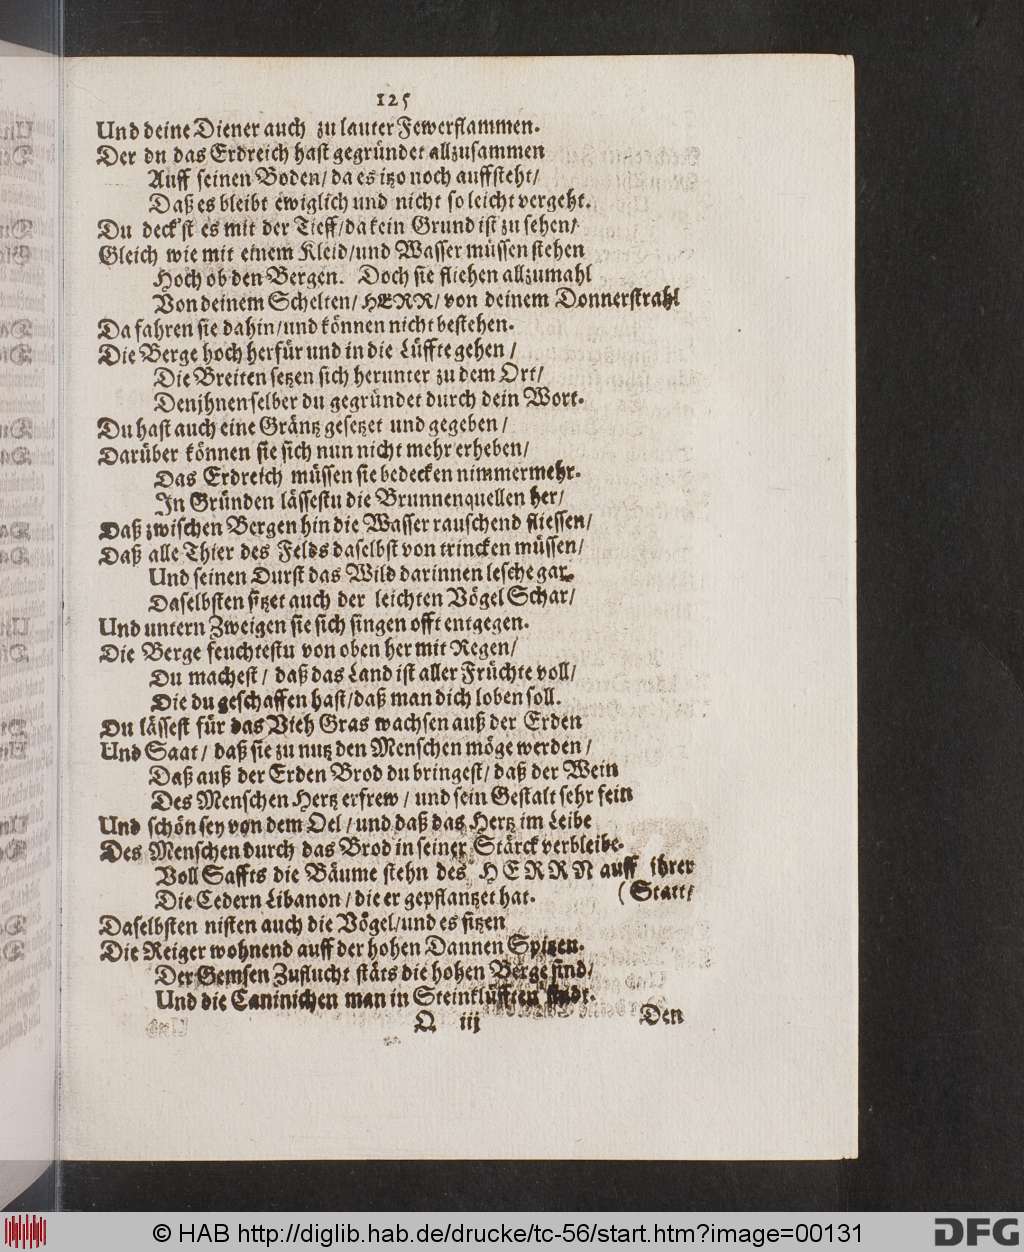 125
Und deine Diener auch zu lauter Fewerflammen.
Der du das Erdreich hast gegründet allzusammen
Auff seinen Boden/ da es itzo noch auffsteht/
Daß es bleibt ewiglich und nicht so leicht vergeht.
Du deck'st es mit der Tieff/da kein Grund ist zu sehen/
Gleich wie mit einem Kleid/und Wasser müssen stehen
Hoch ob den Bergen. Doch sie fliehen allzumahl
Von deinem Schelten/ HERR/ von deinem Donnerstrahl
Da fahren sie dahin/und können nicht bestehen.
Die Berge hoch herfür und in die Lüffte gehen /
Die Breiten setzen sich herunter zu dem Ort/
Den jhnen selber du gegründet durch dein Wort.
Du hast auch eine Gräntz gesetzet und gegeben /
Darüber können sie sich nun nicht mehr erheben/
Das Erdreich müssen sie bedecken nimmermehr.
In Gründen lässestu die Brunnenquellen her/
Daß zwischen Bergen hin die Wasser rauschend fliessen/
Daß alle Thier des Felds daselbst von trincken müssen/
Und seinen Durst das Wild darinnen lesche gar.
Daselbsten sitzet auch der leichten Vögel Schar/
Und untern Zweigen sie sich singen offt entgegen.
Die Berge feuchtestu von oben her mit Regen/
Du machest / daß das Land ist aller Früchte voll/
Die du geschaffen hast/daß man dich loben soll.
Du lässest für das Vieh Gras wachsen auß der Erden
Und Saat / daß sie zu nutz den Menschen möge werden /
Daß auß der Erden Brod du bringest/ daß der Wein
Des Menschen Hertz erfrew / und sein Gestalt sehr fein
Und schön sey von dem Oel / und daß das Hertz im Leibe
Des Menschen durch das Brod in seiner Stärck verbleibe.
Voll Saffts die Bäume stehn des HERRN auff ihrer
Die Cedern Libanon / die er gepflantzet hat. (Statt/
Daselbsten nisten auch die Vögel/und es sitzen
Die Reiger wohnend auff der hohen Dannen Spitzen.
Der Gemsen Zuflucht stäts die hohen Berge sind/
Und die Caninichen man in Steinklüfften findt.
Q iij Den
© HAB http://diglib.hab.de/drucke/tc-56/start.htm?image=00131
DFG